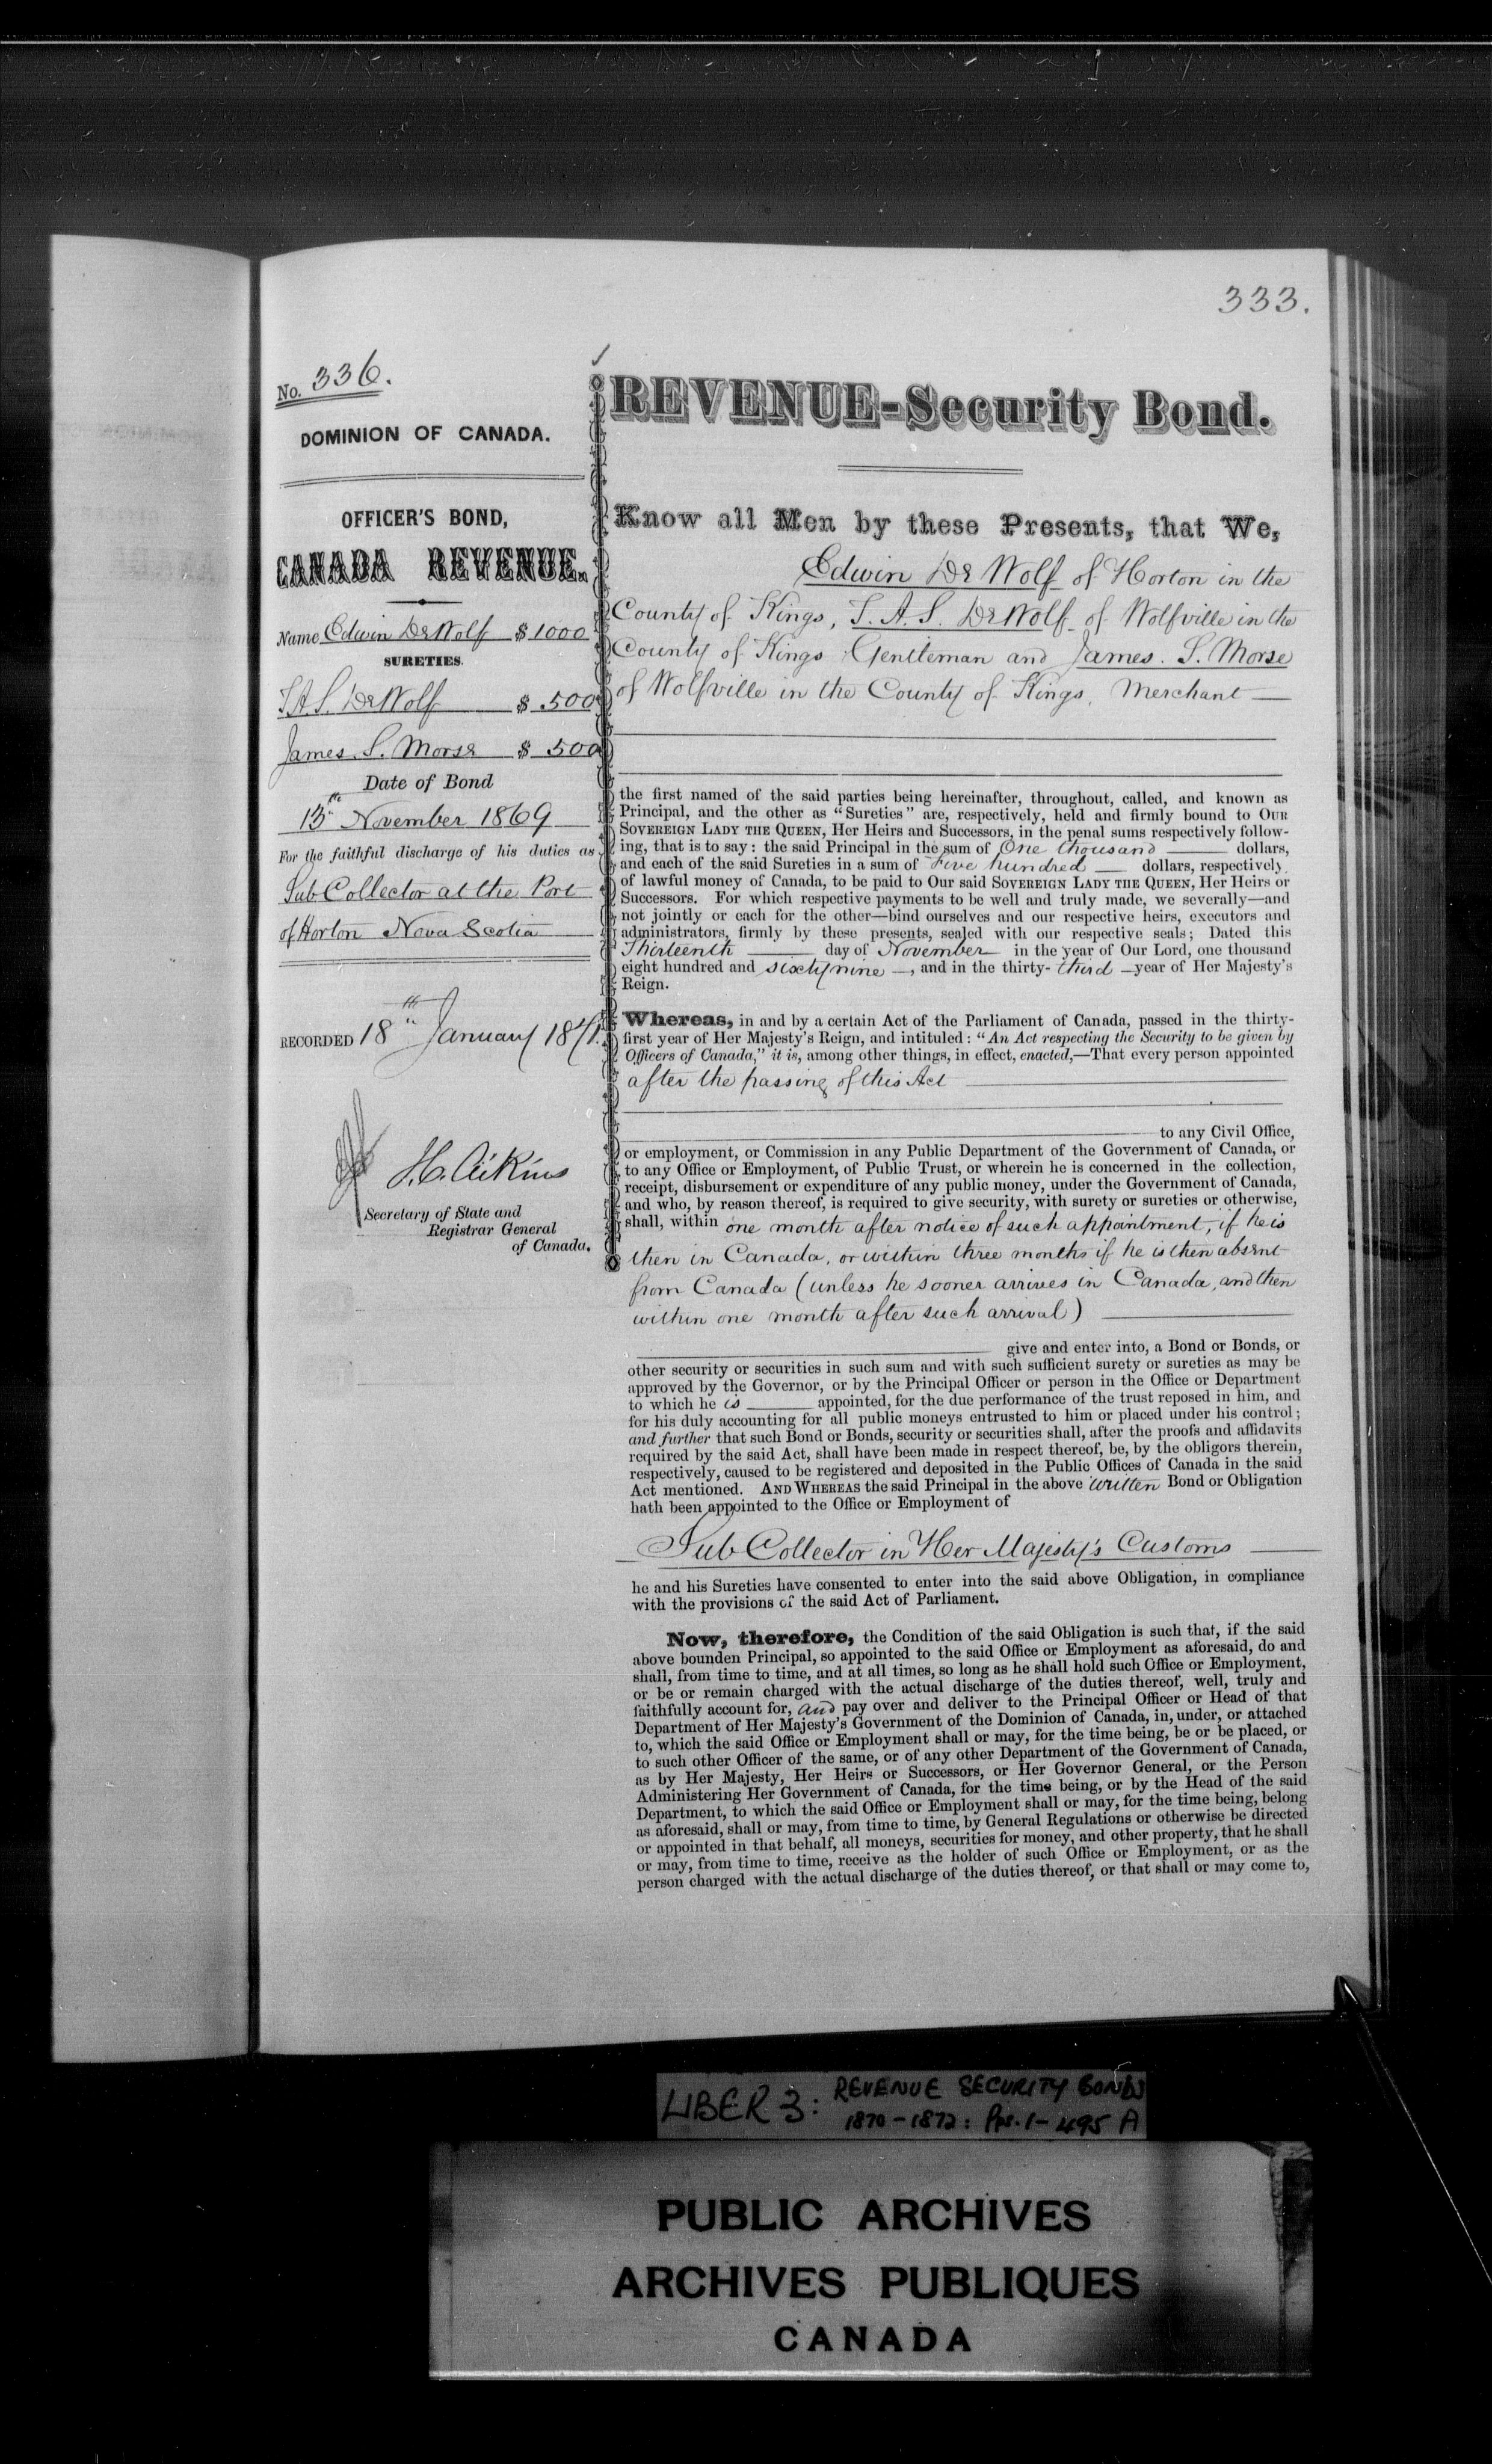 333.
No. 336.
DOMINION OF CANADA.
OFFICER'S BOND,
CANADA REVENUE.
Name Edwin DeWolf $ 1000
SURETIES.
T.A.S. DeWolf $ 500
James S. Morse $ 500
Date of Bond
13th November 1869
For the faithful discharge of his duties as
Sub Collector at the Port
of Horton Nova Scotia
RECORDED 18th January 1871.
J.C. Aikins
Secretary of State and
Registrar General
of Canada.
REVENUE-Security Bond.
Know all Men by these Presents, that We,
Edwin De Wolf of Horton in the
County of Kings, T. A. S. DeWolf of Wolfville in the
County of Kings Gentleman and James. S. Morse
of Wolfville in the County of Kings, Merchant
the first named of the said parties being hereinafter, throughout, called, and known as
Principal, and the other as "Sureties" are, respectively, held and firmly bound to OUR
SOVEREIGN LADY THE QUEEN, Her Heirs and Successors, in the penal sums respectively follow-
ing, that is to say: the said Principal in the sum of One thousand dollars,
and each of the said Sureties in a sum of Five hundred dollars, respectively,
of lawful money of Canada, to be paid to Our said SOVEREIGN LADY THE QUEEN, Her Heirs or
Successors. For which respective payments to be well and truly made, we severally—and
not jointly or each for the other—bind ourselves and our respective heirs, executors and
administrators, firmly by these presents, sealed with our respective seals; Dated this
Thirteenth day of November in the year of Our Lord, one thousand
eight hundred and sixty nine —, and in the thirty- third —year of Her Majesty's
Reign.
Whereas, in and by a certain Act of the Parliament of Canada, passed in the thirty-
first year of Her Majesty's Reign, and intituled: "An Act respecting the Security to be given by
Officers of Canada," it is, among other things, in effect, enacted,—That every person appointed
after the passing of this Act
to any Civil Office,
or employment, or Commission in any Public Department of the Government of Canada, or
to any Office or Employment, of Public Trust, or wherein he is concerned in the collection,
receipt, disbursement or expenditure of any public money, under the Government of Canada,
and who, by reason thereof, is required to give security, with surety or sureties or otherwise,
shall, within one month after notice of such appointment, if he is
then in Canada, or within three months if he is then absent
from Canada (unless he sooner arrives in Canada, and then
within one month after such arrival)
give and enter into, a Bond or Bonds, or
other security or securities in such sum and with such sufficient surety or sureties as may be
approved by the Governor, or by the Principal Officer or person in the Office or Department
to which he is appointed, for the due performance of the trust reposed in him, and
for his duly accounting for all public moneys entrusted to him or placed under his control;
and further that such Bond or Bonds, security or securities shall, after the proofs and affidavits
required by the said Act, shall have been made in respect thereof, be, by the obligors therein,
respectively, caused to be registered and deposited in the Public Offices of Canada in the said
Act mentioned. AND WHEREAS the said Principal in the above written Bond or Obligation
hath been appointed to the Office or Employment of
Sub Collector in Her Majesty's Customs
he and his Sureties have consented to enter into the said above Obligation, in compliance
with the provisions of the said Act of Parliament.
Now, therefore, the Condition of the said Obligation is such that, if the said
above bounden Principal, so appointed to the said Office or Employment as aforesaid, do and
shall, from time to time, and at all times, so long as he shall hold such Office or Employment,
or be or remain charged with the actual discharge of the duties thereof, well, truly and
faithfully account for, and pay over and deliver to the Principal Officer or Head of that
Department of Her Majesty's Government of the Dominion of Canada, in, under, or attached
to, which the said Office or Employment shall or may, for the time being, be or be placed, or
to such other Officer of the same, or of any other Department of the Government of Canada,
as by Her Majesty, Her Heirs or Successors, or Her Governor General, or the Person
Administering Her Government of Canada, for the time being, or by the Head of the said
Department, to which the said Office or Employment shall or may, for the time being, belong
as aforesaid, shall or may, from time to time, by General Regulations or otherwise be directed
or appointed in that behalf, all moneys, securities for money, and other property, that he shall
or may, from time to time, receive as the holder of such Office or Employment, or as the
person charged with the actual discharge of the duties thereof, or that shall or may come to,
LIBER 3: REVENUE SECURITY BONDS
1870-1872: Pps. 1-495 A
PUBLIC ARCHIVES
ARCHIVES PUBLIQUES
CANADA